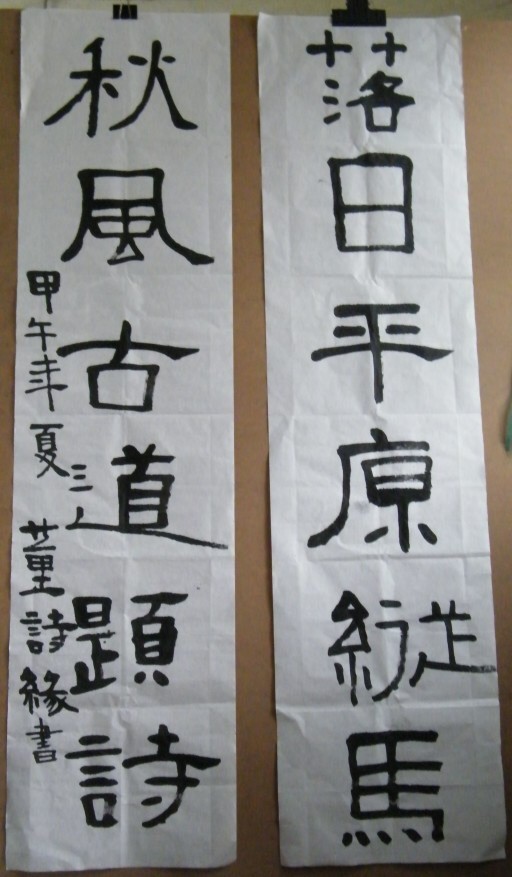 落日平原縱馬
秋風古道題詩
甲午年夏 董詩緣書